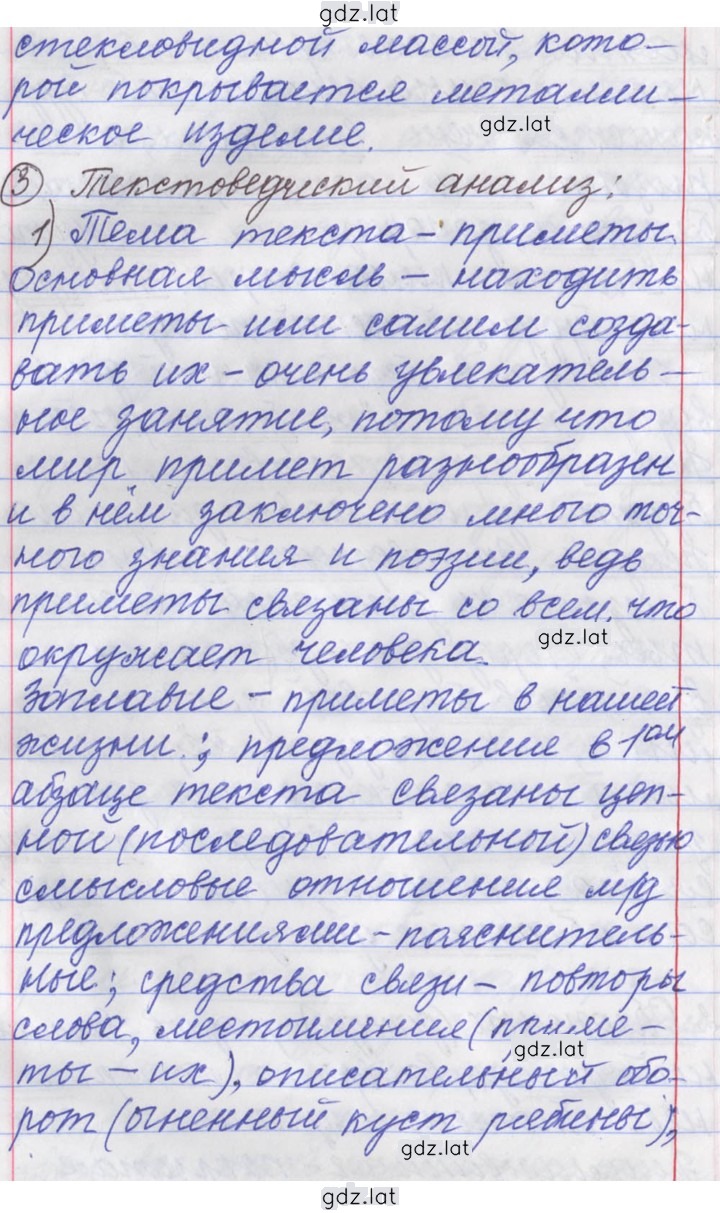 gdz.lat
стекловидной массой, кото-
рой покрывается металли-
ческое изделие.
gdz.lat
③ Текстоведческий анализ:
1) Тема текста - приметы.
Основная мысль - находить
приметы или самим созда-
вать их - очень увлекатель-
ное занятие, потому что
мир примет разнообразен
и в нём заключено много точ-
ного знания и поэзии, ведь
приметы связаны со всем, что
gdz.lat
окружает человека.
Заглавие - приметы в нашей
жизни.; предложения в 1ом
абзаце текста связаны цеп-
ной (последовательной) связью
смысловые отношения м/д
предложениями - пояснитель-
ные; средства связи - повторы
слова, местоимения (приме-
gdz.lat
ты - их), описательный обо-
рот (огненный куст рябины),
gdz.lat
gdz.lat